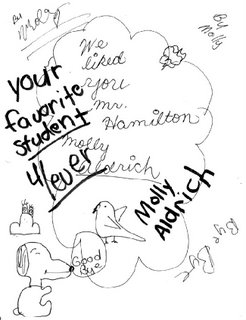 By Molly
By Molly
We
liked
you
mr.
Hamilton
Molly
Aldrich
your
favorite
student
4/ever
Molly
Aldrich
Good
Bye
Bye
Bye